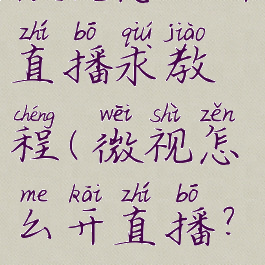 zhí bō qiú jiào
直播求教
chéng wēi shì zěn
程(微视怎
me kāi zhí bō
么开直播?